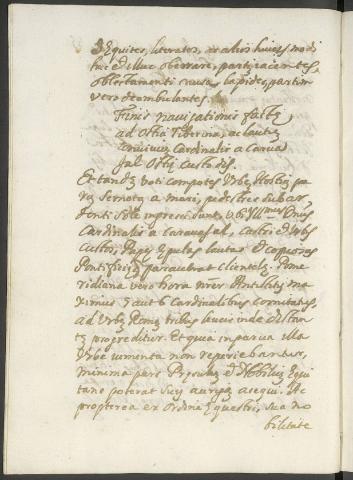 Equites, literatos, et alios huiusmodi
huc et illuc oberrare, partim iacentes,
oblectamenti causa lapides, partim
vero deambulantes.
Finis navigationis facte
ad Ostia Tiberina, ac lautum
convivium Cardinalis a Carva
jal Ostij Custodis.
Et tandem voti compotes Urbem Hostiam pa
rum semotam a mari, pedestres subar
denti Sole ingressi sunt, ubi Ill.mus Dnus
Cardinalis a Caravajal, Castri et Urbis
Custos, Pape epulas lautas et copiosas
Pontificis paraverat Clientelis. Pome
ridiana vero hora Antistes ma
ximus Cardinalibus comitatus,
ad Urbem Romam tribus leucis inde distan
tem progreditur. Et quia in parva illa
Urbe iumenta non reperiebantur,
minima pars Presulum et Nobilium Equi
tando poterat suum assequi. Ac
propterea ex Ordine equestri, sua no
bilitate